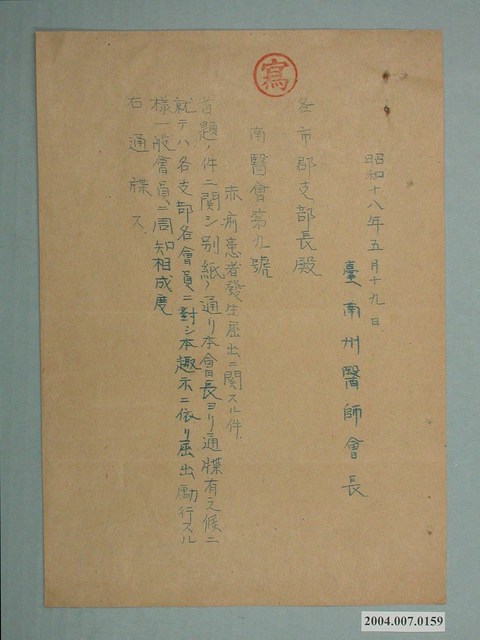 寫
昭和十八年五月十九日
臺南州醫師會長
各市郡支部長殿
南醫會第九號
赤痢患者發生屆出ニ關スル件
首題ノ件ニ關シ別紙ノ通リ本會長ヨリ通牒有之候ニ
就テハ各支部各會員ニ對シ本趣示ニ依リ屆出勵行スル
樣一般會員ニ周知相成度
右通牒ス
2004.007.0159